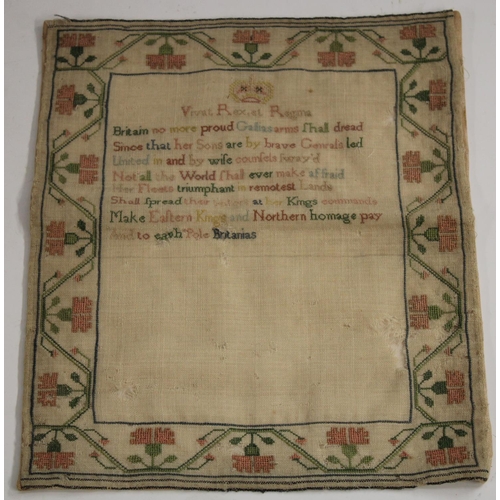 Vivat Rex, et Regina
Britain no more proud Gallias arms ſhall dread
Since that her Sons are by brave Generals led
United in and by wiſe counſels ſway'd
Not all the World ſhall ever make affraid
Her Fleets triumphant in remoteſt Lands
Shall ſpread at her Kings commands
Make Eaſtern Kings and Northern homage pay
And to each Pole Britanias